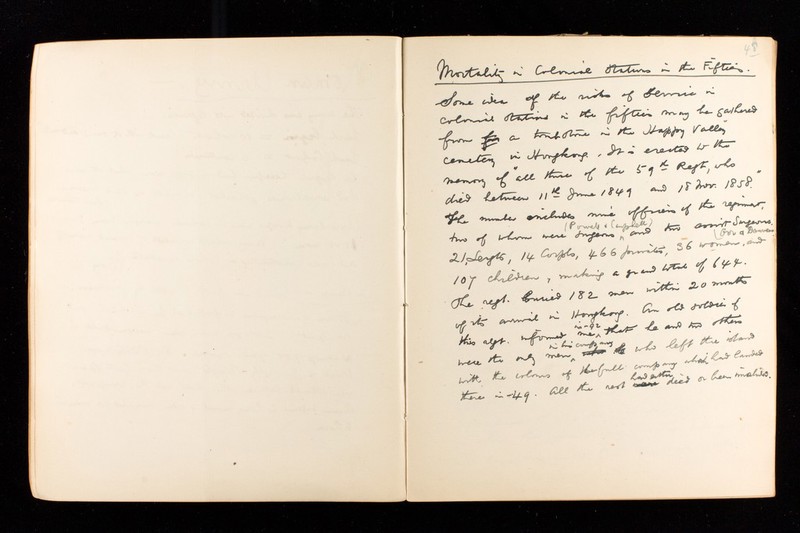 48
Mortality in Colonial Stations in the Fifties.
Some idea of the risks of Service in
colonial stations in the fifties may be gathered
from a tombstone in the Happy Valley
cemetery in Hongkong. It is erected to the
memory of "all those of the 59th Regt, who
died between 11th June 1849 and 18 Nov. 1858."
The number includes nine officers of the regiment,
(Powell & Campbell)
two of whom were surgeons, and two assist Surgeons
21 Sergts, 14 Corpls, 466 privates, 36 women, and
107 children, making a grand total of 644.
The regt. buried 182 men within 20 months
of its arrival in Hongkong. An old soldier of
this regt. informed me, in -92 that he and two others
were the only men, in his company who left the island
with the colours of the full company which had landed
there in -49. All the rest had either died or been invalided.